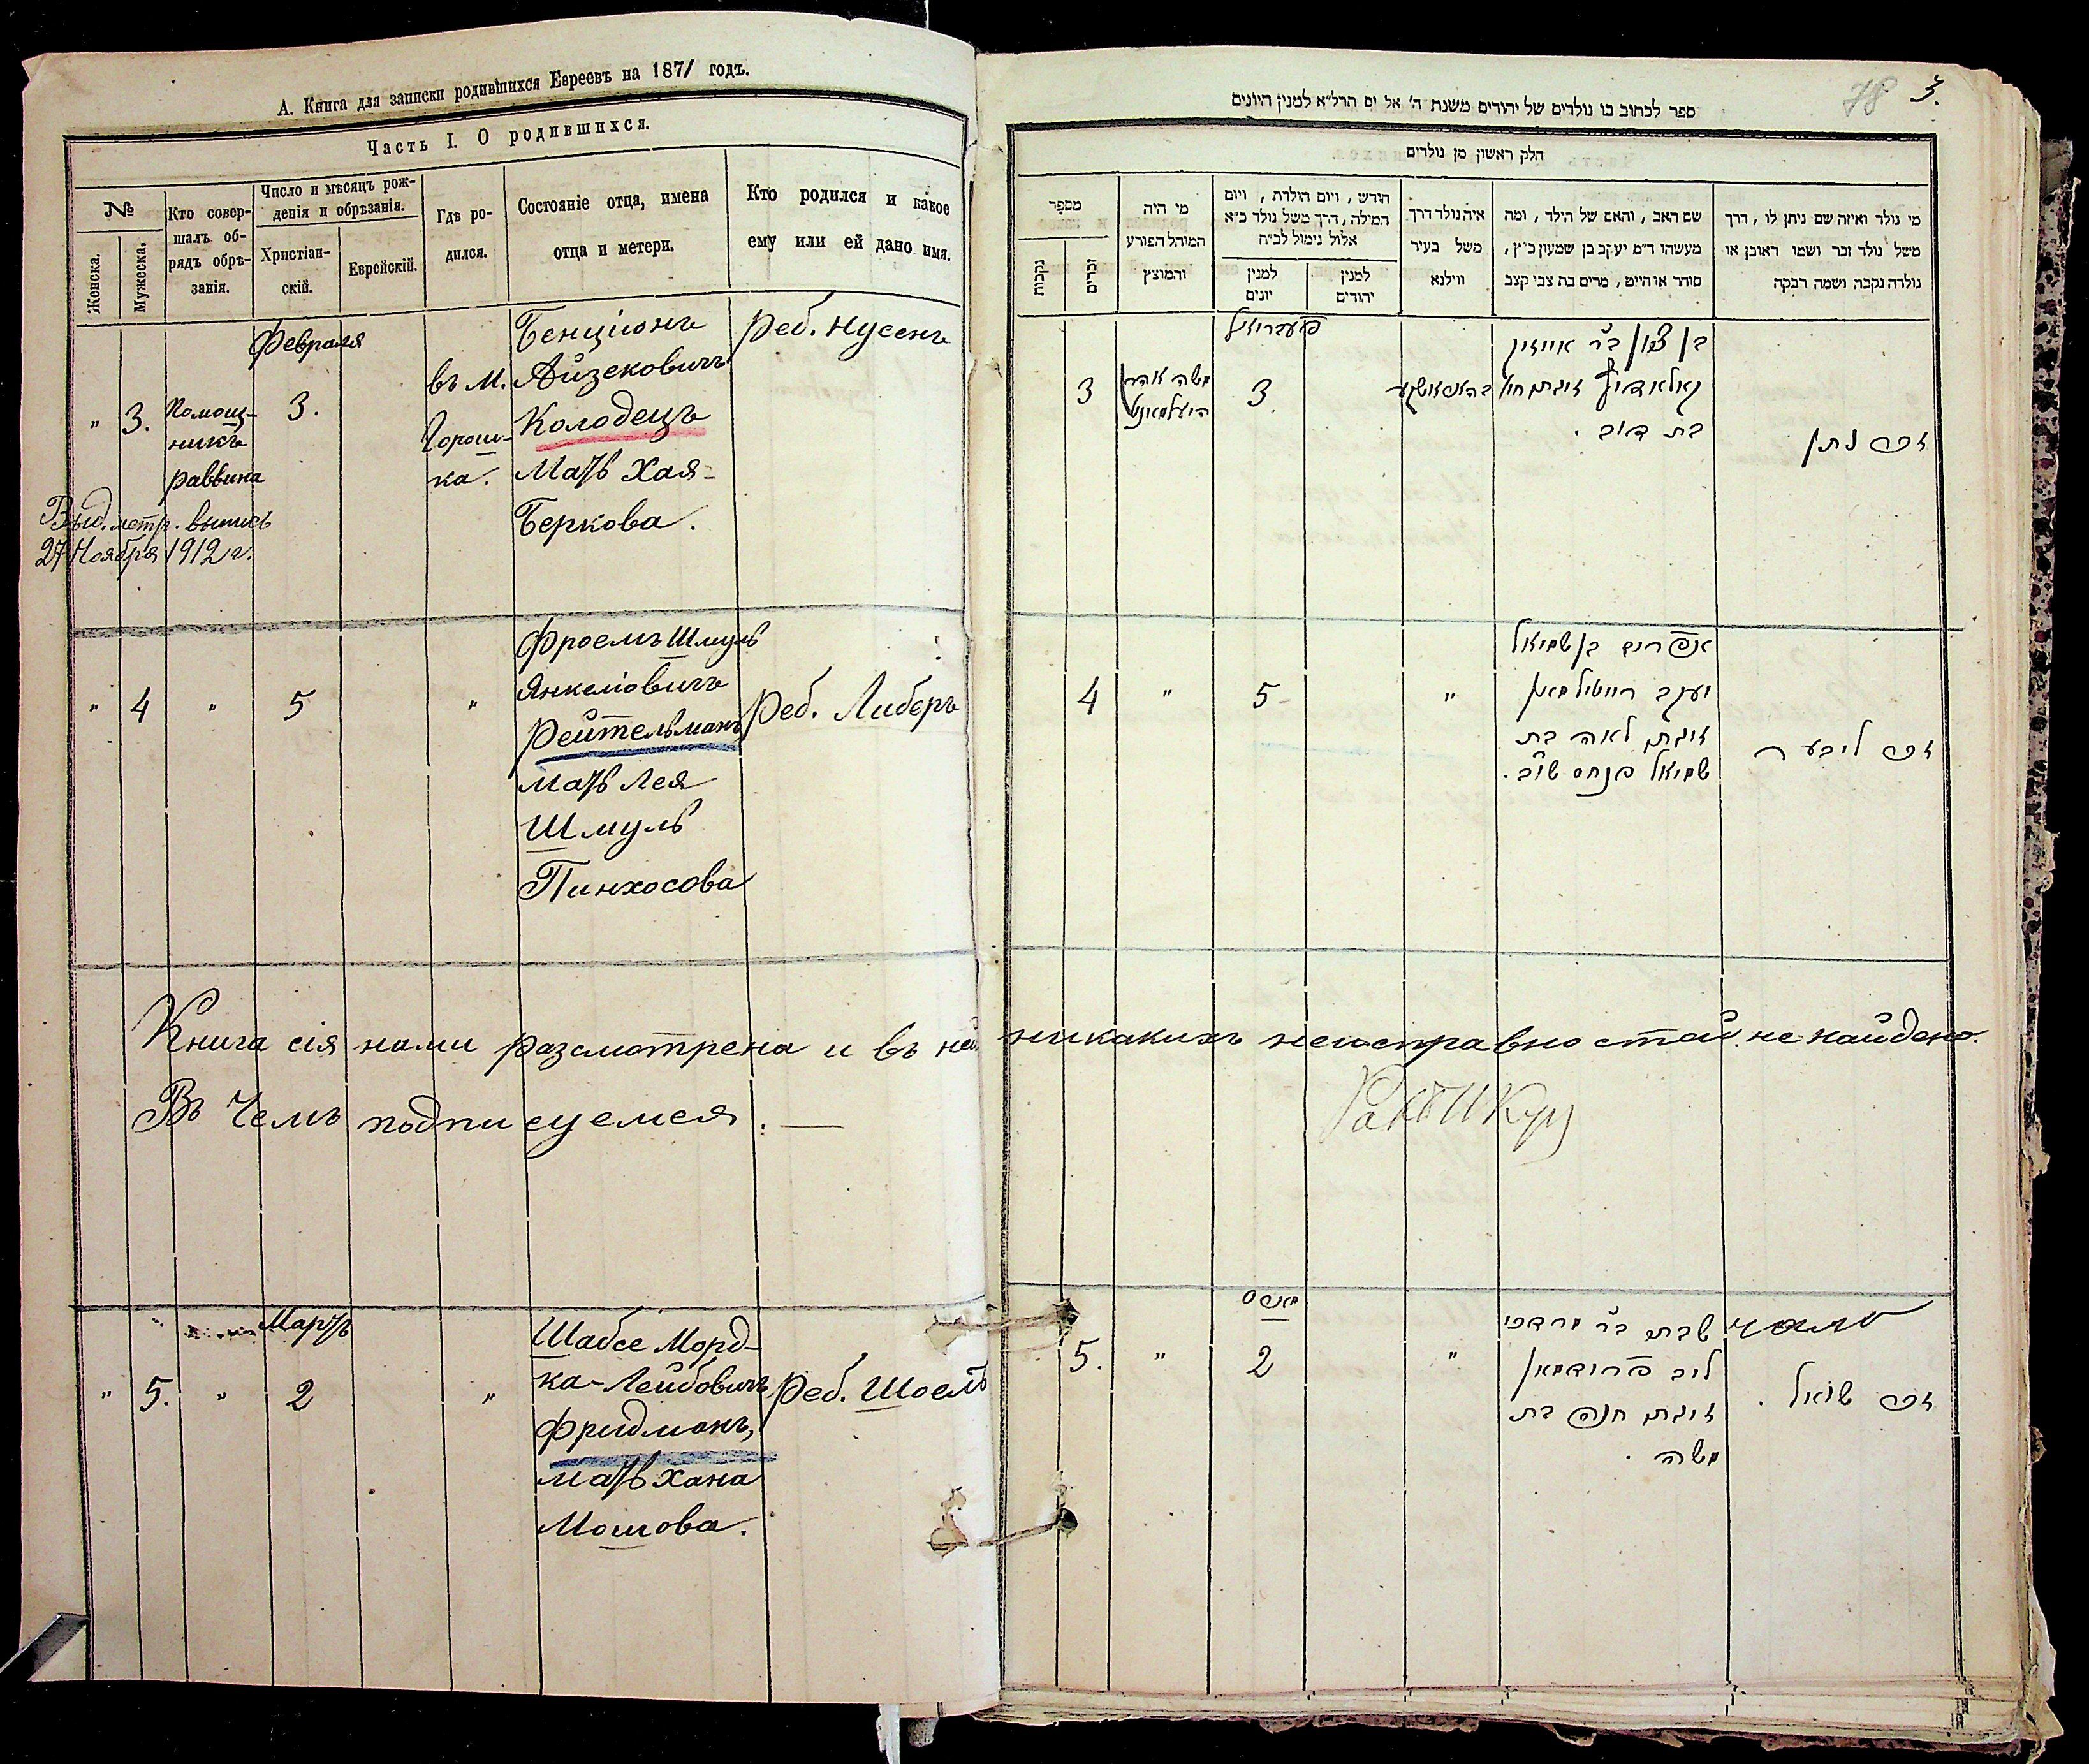 А. Книга для записки родившихся Евреевъ на 1871 годъ.
Часть I. О родившихся.
№
Женска.
Мужеска.
Кто совер-
шалъ об-
рядъ обрѣ-
занія.
Число и мѣсяцъ рож-
денія и обрѣзанія.
Христіан-
скій.
Еврейскій.
Гдѣ ро-
дился.
Состояніе отца, имена
отца и метери.
Кто родился и какое
ему или ей дано имя.
Февраля
" 3.
Помощ-
никъ
раввина
3.
въ м.
Горош-
ка.
Бенціонъ
Айзековичъ
Колодецъ
Мать Хая-
Беркова.
Реб. Нусенъ
Выд. метр. выпись
27 Ноября 1912 г.
" 4 " 5 "
Фроемъ Шмуль
Янкеліовичъ
Рейтельманъ
Мать Лея
Шмуль
Пинхосова
Реб. Либеръ
Книга сія нами разсмотрена и въ ней никакихъ неисправностей не найдено.
Въ чемъ подписуемся. —
Мартъ
" 5. " 2 "
Шабсе Морд-
ка-Лейбовичъ
Фридманъ,
мать Хана
Мошова.
Реб. Шоель
78 3.
ספר לכתוב בו נולדים של יהודים משנת ה' אל יס תרל״א למנין היונים
חלק ראשון מן נולדים
מספר
נקבות
זכרים
מי היה
המוהל הפורע
והמוצץ
חודש, ויום הולדת, ויום
המילה, דרך משל נולד כ״א
אלול נימול לכ״ח
למנין
יונים
למנין
יהודים
איה נולד דרך
משל בעיר
ווילנא
שם האב, והאם של הילד, ומה
מעשהו ד״מ יעקב בן שמעון כ״ץ,
סוחר או חייט, מרים בת צבי קצב
מי נולד ואיזה שם ניתן לו, דרך
משל נולד זכר ושמו ראובן או
נולדה נקבה ושמה רבקה
פעברואל
3
משה אהרן
3
בן ציון ב״ר אייזיק
זוגתו חיה
בת דוב.
זכר נתן
4 " 5 "
אפרים בן שמואל
יעקב רייטילמאן
זוגתו לאה בת
שמואל פנחס שו״ב.
זכר ליבער
מארט
5. " 2 "
שבתי ב״ר מרדכי
ליב פרידמאן
זוגתו חנה בת
משה.
זכר שואל.